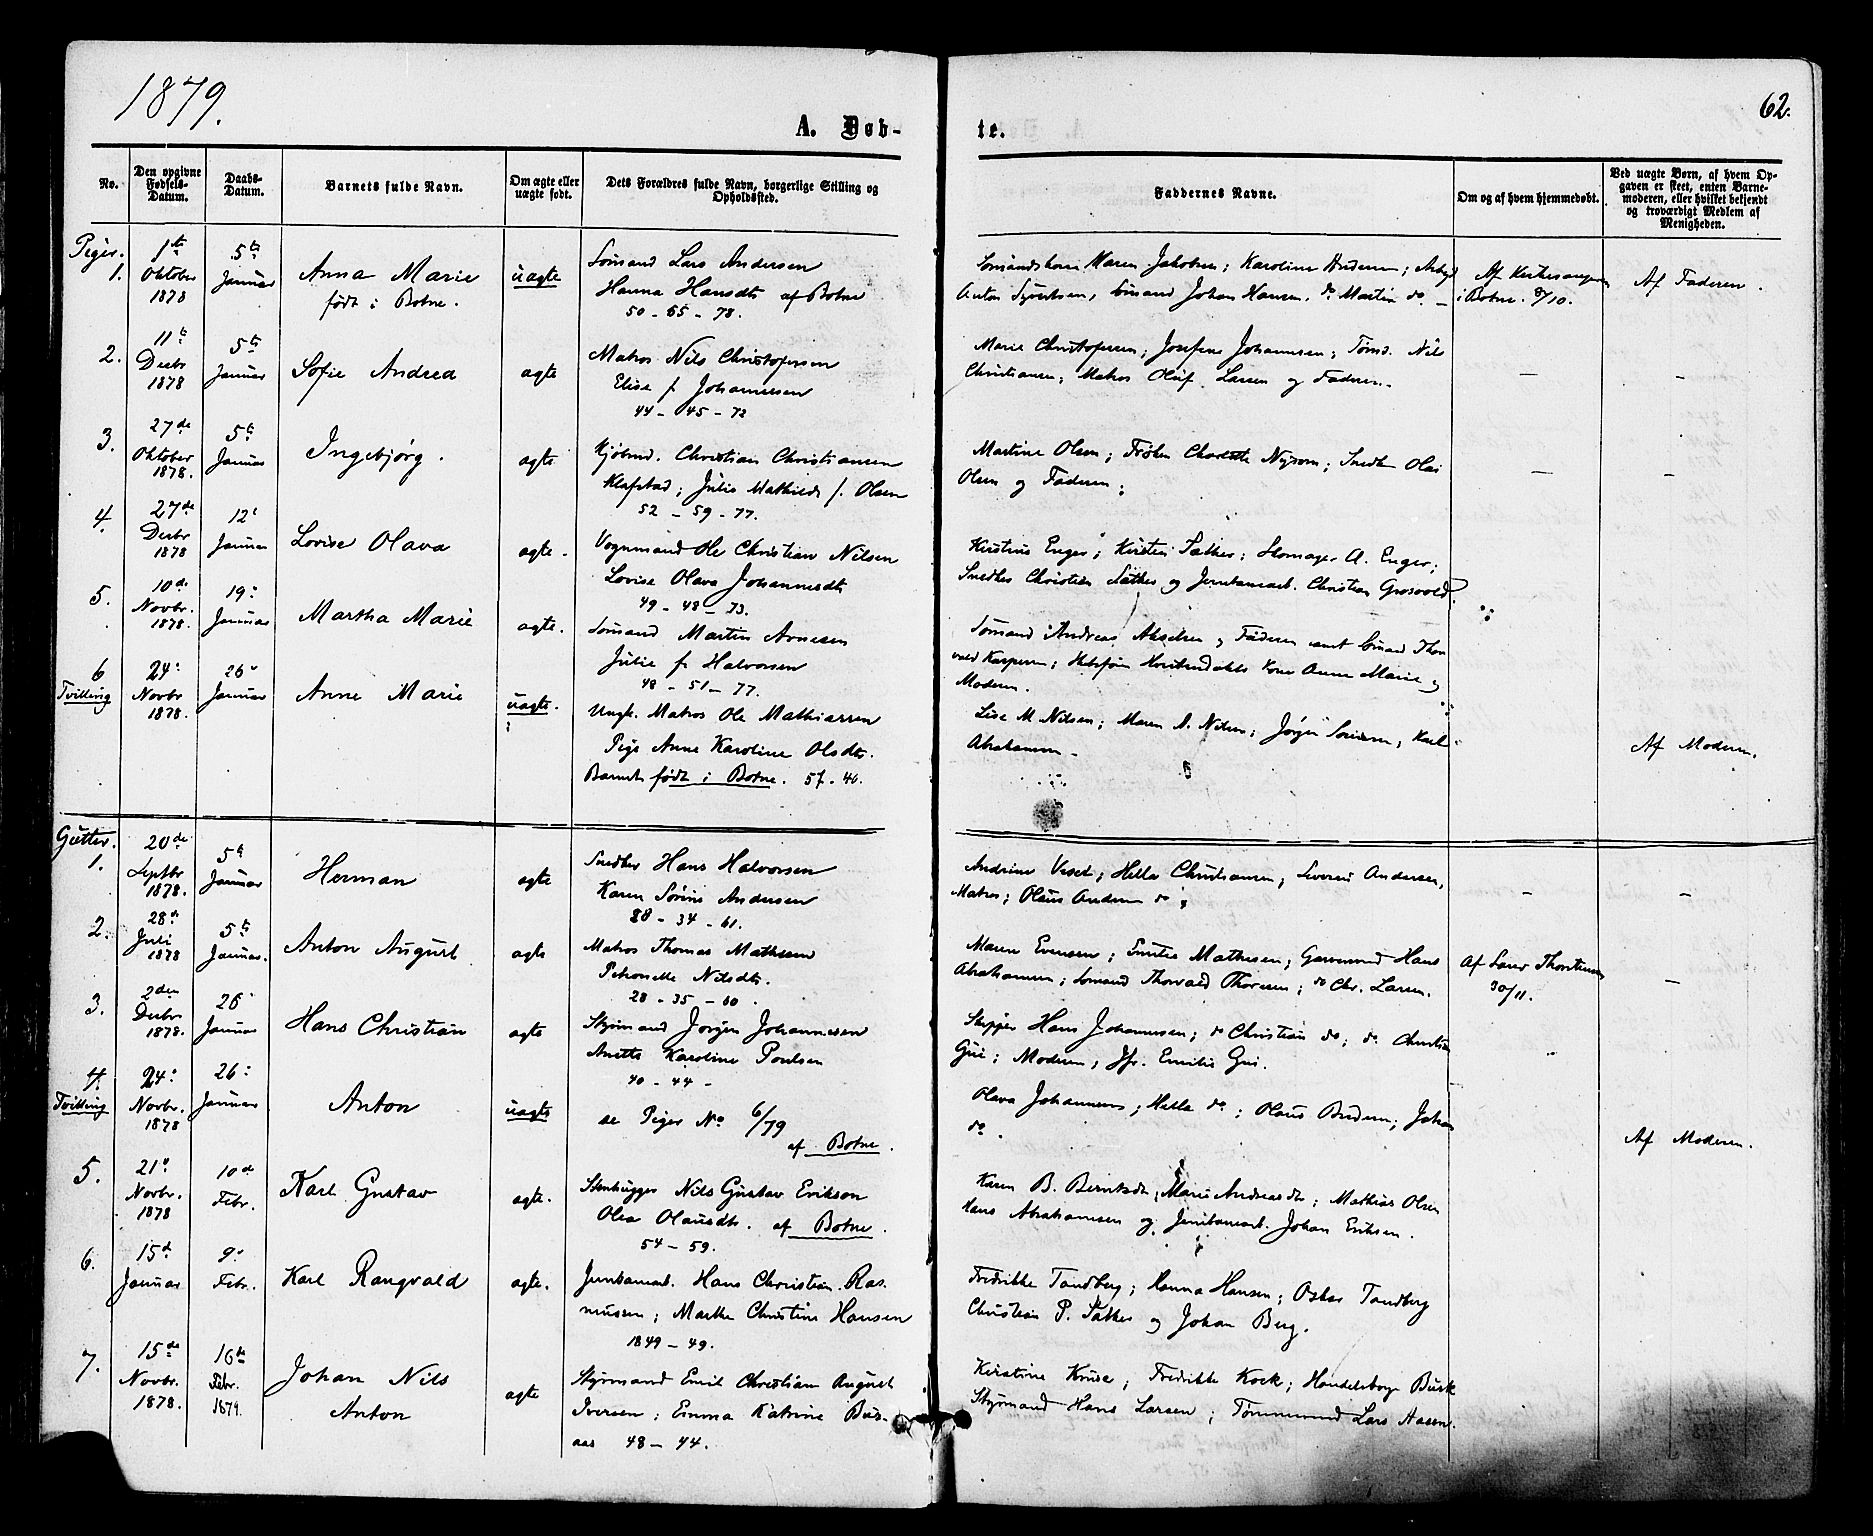 1879.
62.
A. Døb-
te.
No.
Den opgivne Fødsels-Datum.
Daabs-Datum.
Barnets fulde Navn.
Om ægte eller uægte født.
Dets Forældres fulde Navn, borgerlige Stilling og Opholdssted.
Faddernes Navne.
Om og af hvem hjemmedøbt.
Ved uægte Børn, af hvem Opgaven er skeet, enten Barnemoderen, eller hvilket bekjendt og troværdigt Medlem af Menigheden.
Piger.
1.
1te Oktober 1878
5te Januar
Anna Marie
født i Botne.
uægte
Sømand Lars Andersen
Hanna Hansdtr af Botne
50 - 55 - 78.
Sømandskone Maren Jakobsen; Karoline Andersen;
Anton Syvertsen, Sømand Johan Hansen, do Martin do. -
Af Kirkesangeren
i Botne. 9/10.
Af Faderen.
2.
11te Decbr 1878
5te Januar
Sofie Andrea
ægte
Matros Nils Christofersen
Elise f. Johannesen
44 - 45 - 72
Marie Christofersen; Josefine Johannesen; Tømd. Nils
Christiansen; Matros Oluf Larsen og Faderen.
-
-
3.
27de Oktober 1878.
5te Januar
Ingebjørg.
ægte
Kjøbmd. Christian Christiansen
Klafstad; Julie Mathilde f. Olsen
52 - 59 - 77.
Martine Olsen; Frøken Charlotte Nysom; Snedk Olai
Olsen og Faderen;
-
-
4.
27de Decbr 1878
12te Januar
Lovise Olava
ægte.
Vognmand Ole Christian Nilsen
Lovise Olava Johannesdtr
49 - 48 - 73.
Kirstine Enger; Kirsten Sæther; Skomager A. Enger;
Snedker Christian Sæther og Jernbanearb. Christian Grosvold.
5.
10de Novbr. 1878.
19: Januar
Martha Marie
ægte.
Sømand Martin Arnesen
Julie f. Halvorsen
48 - 51 - 77.
Sømand Andreas Akselsen og Faderen samt Sømand Thor
vald Kaspersen; Kone Anne Marie og
Moderen.
6
Tvilling
24: Novbr 1878.
26: Januar
Anne Marie
uægte.
Ungk. Matros Ole Mathiassen
Pige Anne Karoline Olsdtr.
Barnet født i Botne. 57 - 46.
Lise M. Nilsen; Maren A. Nilsen; Jørgen Sørensen; Karl
Abrahamsen -
Af Moderen.
Gutter.
1.
20de Septbr 1878.
5te Januar
Herman
ægte
Snedker Hans Halvorsen
Karen Sørine Andersen
28 - 34 - 61.
Andrine Veset; Helle Christiansen; Severin Andersen,
Matros; Olaus Andersen do;
-
-
2.
28de Juli 1878
5te Januar.
Anton August
ægte
Matros Thomas Mathisen
Petronelle Nilsdtr.
28 - 35 - 60.
Maren Evensen; Emilie Mathisen; Garvesvend Hans
Abrahamsen; Sømand Thorvald Thoresen; do Chr. Larsen.
Af Lærer Thorstensen
30/11.
-
3.
2den Decbr 1878.
26: Januar
Hans Christian
ægte
Styrmand Jørgen Johannesen
Anette Karoline Poulsen
40 - 44 -
Skipper Hans Johannesen; do Christian do; do Christian
Gui; Moderen; Jfr. Emilie Gui.
4.
Tvilling
24: Novbr. 1878
26: Januar
Anton
uægte
se Piger No 6/79
af Botne.
Olava Johannesen; Helle do; Olaus Andersen; Johan
do.
Af Moderen.
5.
21: Novbr. 1878
10de Febr.
Karl Gustav
ægte.
Stenhugger Nils Gustav Erikson
Olea Olausdtr. af Botne.
54 - 59.
Karen B. Berntsdtr; Marie Andreasdtr; Mathias Olsen
Hans Abrahamsen og Jernbanearb. Johan Eriksen.
6.
15de Januar
9: Febr.
Karl Rangvald
ægte.
Jernbanearb. Hans Christian Ras-
mussen; Marthe Christine Hansen
1849 - 49.
Fredrikke Tandberg; Hanna Hansen; Oskar Tandberg
Christian P. Sæther og Johan Berg.
7.
15de Novbr. 1878.
16de Febr. 1879.
Johan Nils
Anton
ægte
Styrmand Emil Christian August
Iversen; Emma Katrine Bus-
aas 48 - 44.
Kirstine Kruse; Fredrikke Kock; Handelsborger Busk
Styrmand Hans Larsen; Tømmermand Lars Aasen.